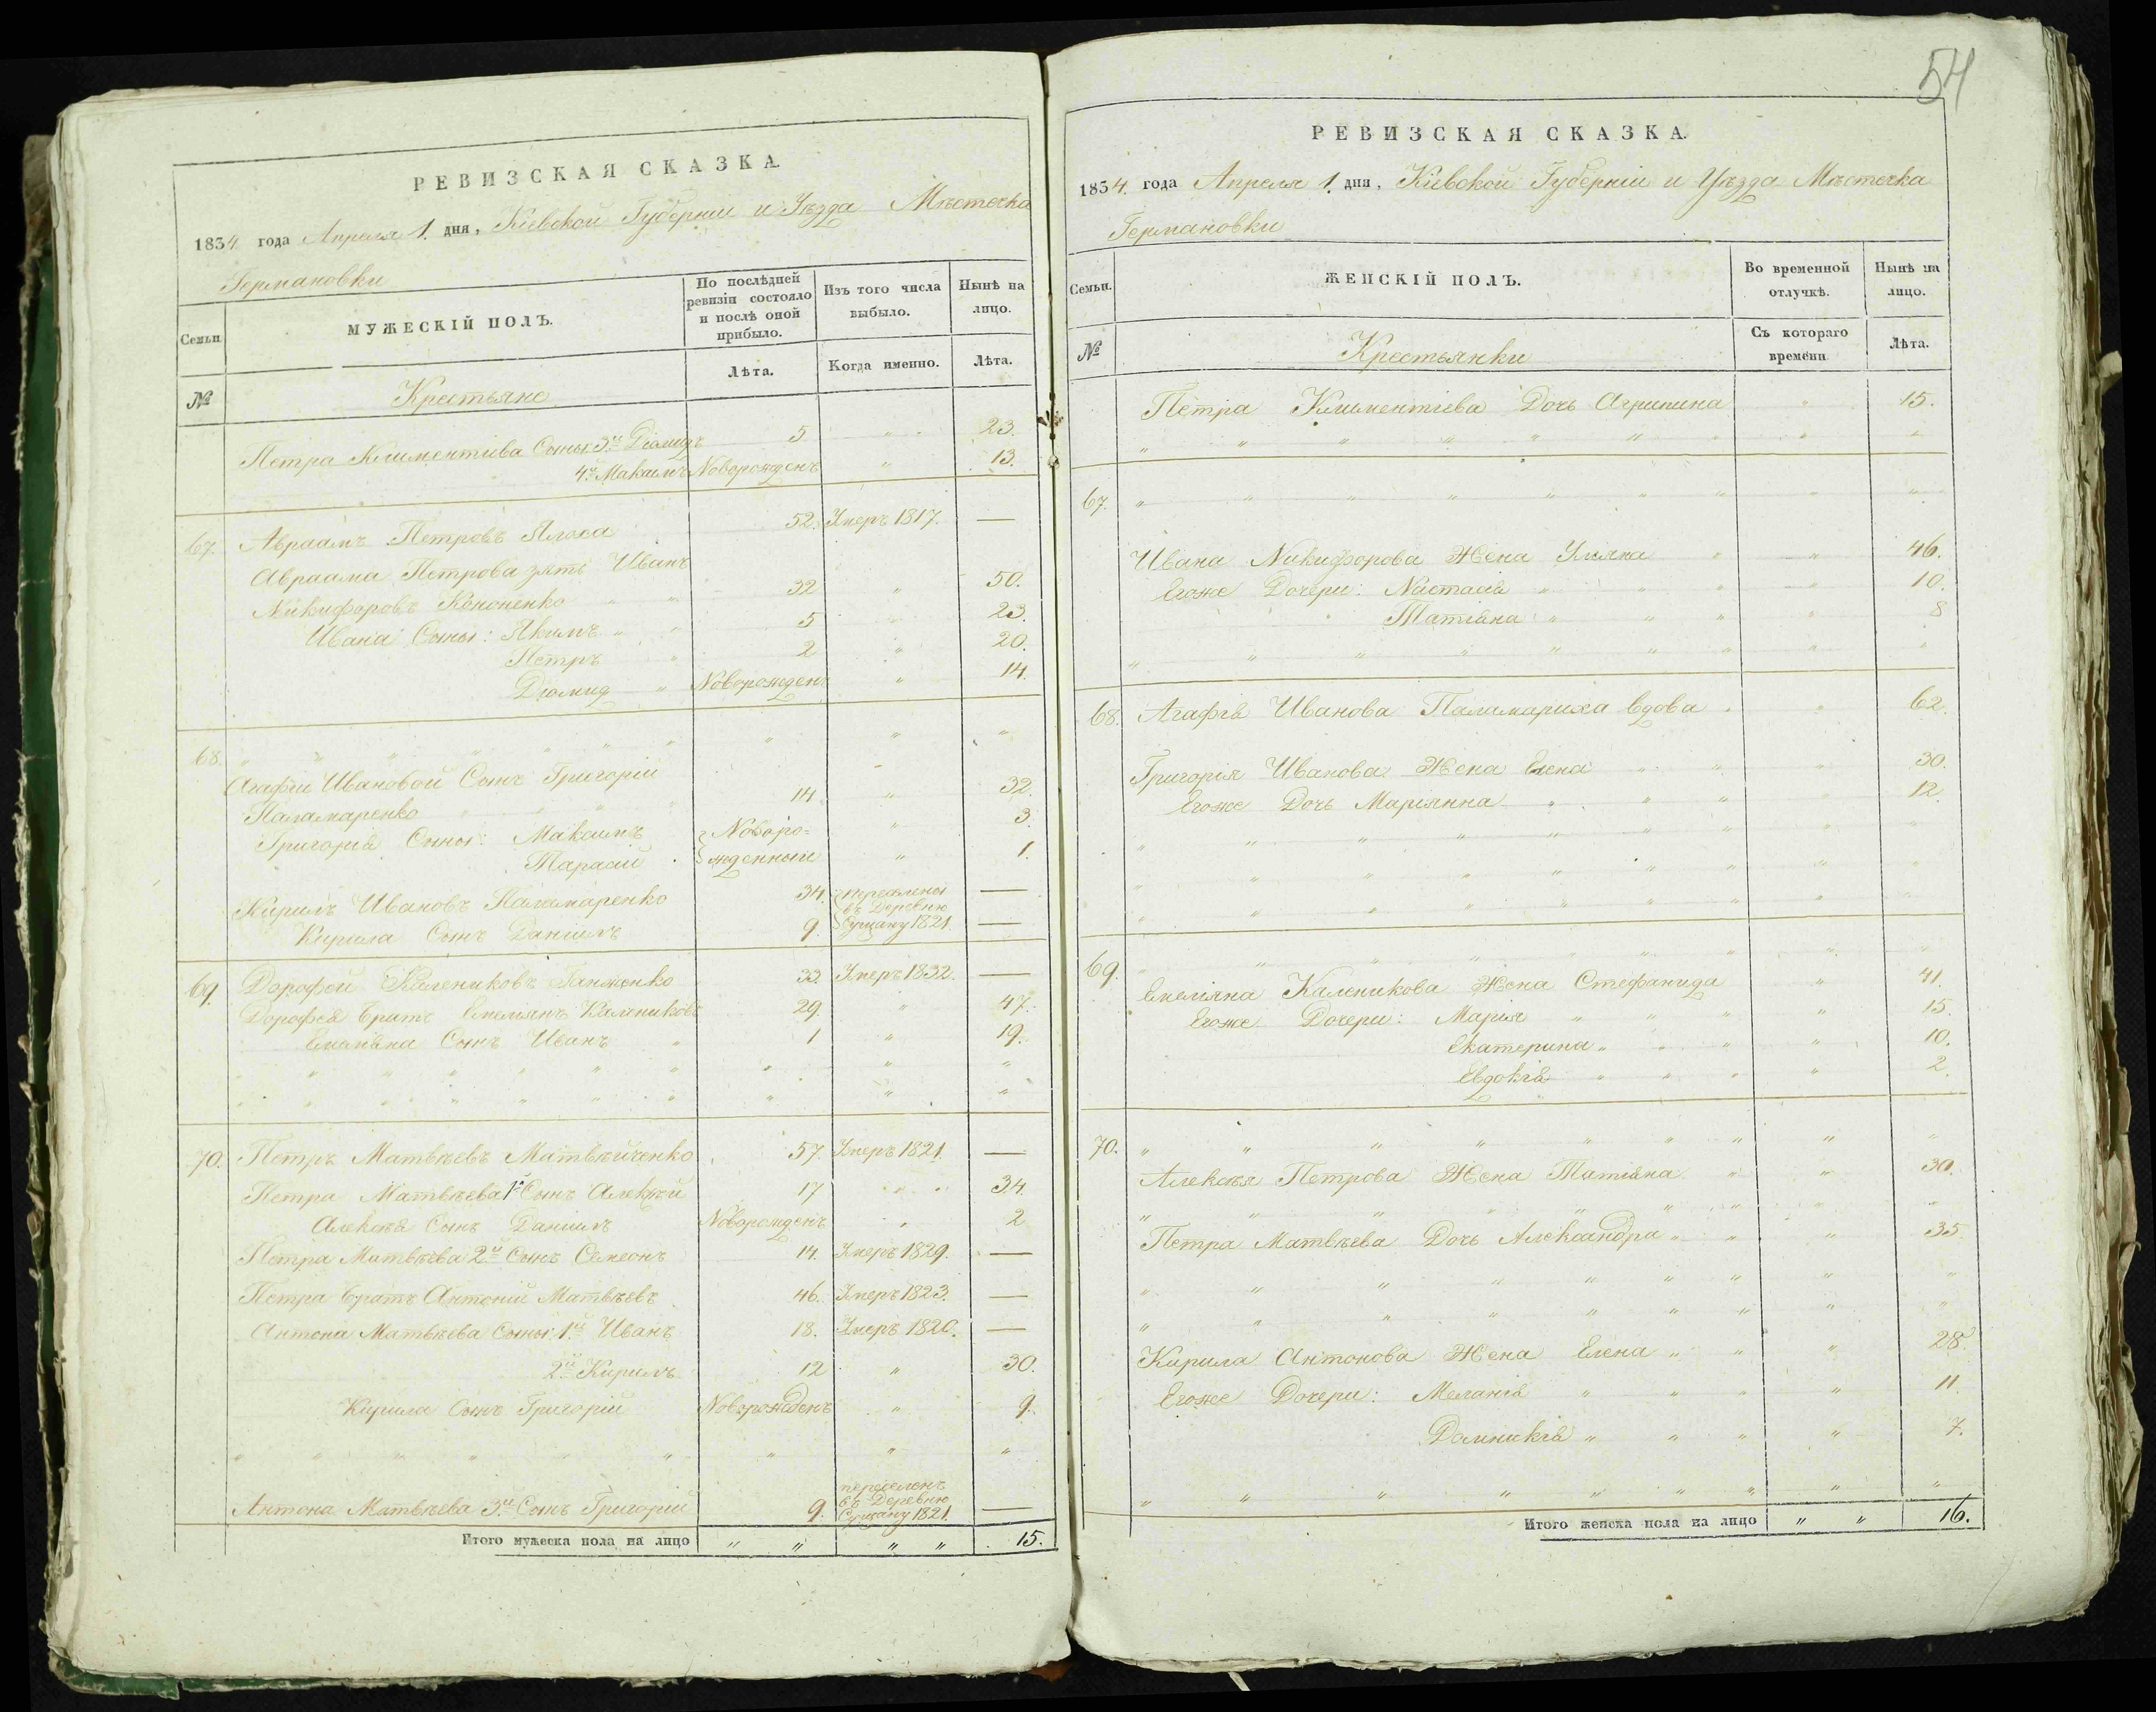 РЕВИЗСКАЯ СКАЗКА.
1834 года Апреля 1. дня, Кіевской Губерніи и Уѣзда Мѣстечка
Германовки
Семьи.
МУЖЕСКІЙ ПОЛЪ.
По послѣдней ревизіи состояло и послѣ оной прибыло.
Изъ того числа выбыло.
Нынѣ на лицо.
№
Крестьяне
Лѣта.
Когда именно.
Лѣта.
Петра Климентіева Сыны: 3й Діомидъ 5 " 23.
4й Максимъ Новорожденъ " 13.
67. Авраамъ Петровъ Ялоха 52. Умеръ 1817. —
Авраама Петрова зять Иванъ
Никифоровъ Кононенко " " 32 " 50.
Ивана Сыны: Якимъ " " 5 " 23.
Петръ " 2 " 20.
Діомид " Новорожден " 14.
68. " " " " " " " " " "
Агафіи Ивановой Сынъ Григорій
Паламаренко " " " " 14 " 32.
Григорія Сыны: Максимъ Новоро= " 3.
Тарасий жденный " 1.
Кирилъ Ивановъ Паламаренко 34. переселены —
въ Деревню
Кирила Сынъ Даніилъ 9. Сущану 1821. —
69. Дорофей Калениковъ Ганженко 33. Умеръ 1832. —
Дорофея Братъ Емелянъ Калениковъ 29. " 47.
Емеляна Сынъ Иванъ " 1 " 19.
" " " " " " " " " "
" " " " " " " " " "
70. Петръ Матвѣевъ Матвѣйченко 57. Умеръ 1821. —
Петра Матвѣева 1й Сынъ Алексѣй 17 " " 34.
Алексѣя Сынъ Даніилъ Новорожденъ " 2
Петра Матвѣева 2й Сынъ Семеонъ 14. Умеръ 1829. —
Петра Братъ Антоній Матвѣевъ 46. Умеръ 1823. —
Антона Матвѣева Сыны: 1й Иванъ 18. Умеръ 1820. —
2й Кирилъ 12 " 30.
Кирила Сынъ Григорій Новорожденъ " 9.
" " " " " " " " " "
переселенъ
въ Деревню
Антона Матвѣева 3й Сынъ Григорій 9. Сущану 1821. —
Итого мужеска пола на лицо " " " " 15.
54
РЕВИЗСКАЯ СКАЗКА.
1834. года Апреля 1. дня, Кіевской Губерніи и Уѣзда Мѣстечка
Германовки
Семьи.
ЖЕНСКІЙ ПОЛЪ.
Во временной отлучкѣ.
Нынѣ на лицо.
№
Крестьянки
Съ котораго времени
Лѣта.
Петра Климентіева Дочь Агрипина " 15.
" " " " " " " " "
67. " " " " " " " " "
Ивана Никифорова Жена Уліяна " " 46.
Егоже Дочери: Настасія " " " " 10.
Татіяна " " " " 8
" " " " " " " " "
68. Агафія Иванова Паламариха вдова " " 62.
Григорія Иванова Жена Елена " " " 30.
Егоже Дочь Маріянна " " " 12.
" " " " " " " " "
" " " " " " " " "
" " " " " " " " "
69. " " " " " " " " "
Емеліяна Каленикова Жена Стефанида " 41.
Егоже Дочери: Марія " " " " 15.
Екатерина " " " " 10.
Евдокія " " " " 2.
70. " " " " " " " " "
Алексѣя Петрова Жена Татіяна " " 30.
" " " " " " " " "
Петра Матвѣева Дочь Александра " " " 35.
" " " " " " " " "
" " " " " " " " "
Кирила Антонова Жена Елена " " " 28.
Егоже Дочери: Меланія " " " " 11.
Домникія " " " " 7.
" " " " " " " " "
Итого женска пола на лицо " " 16.